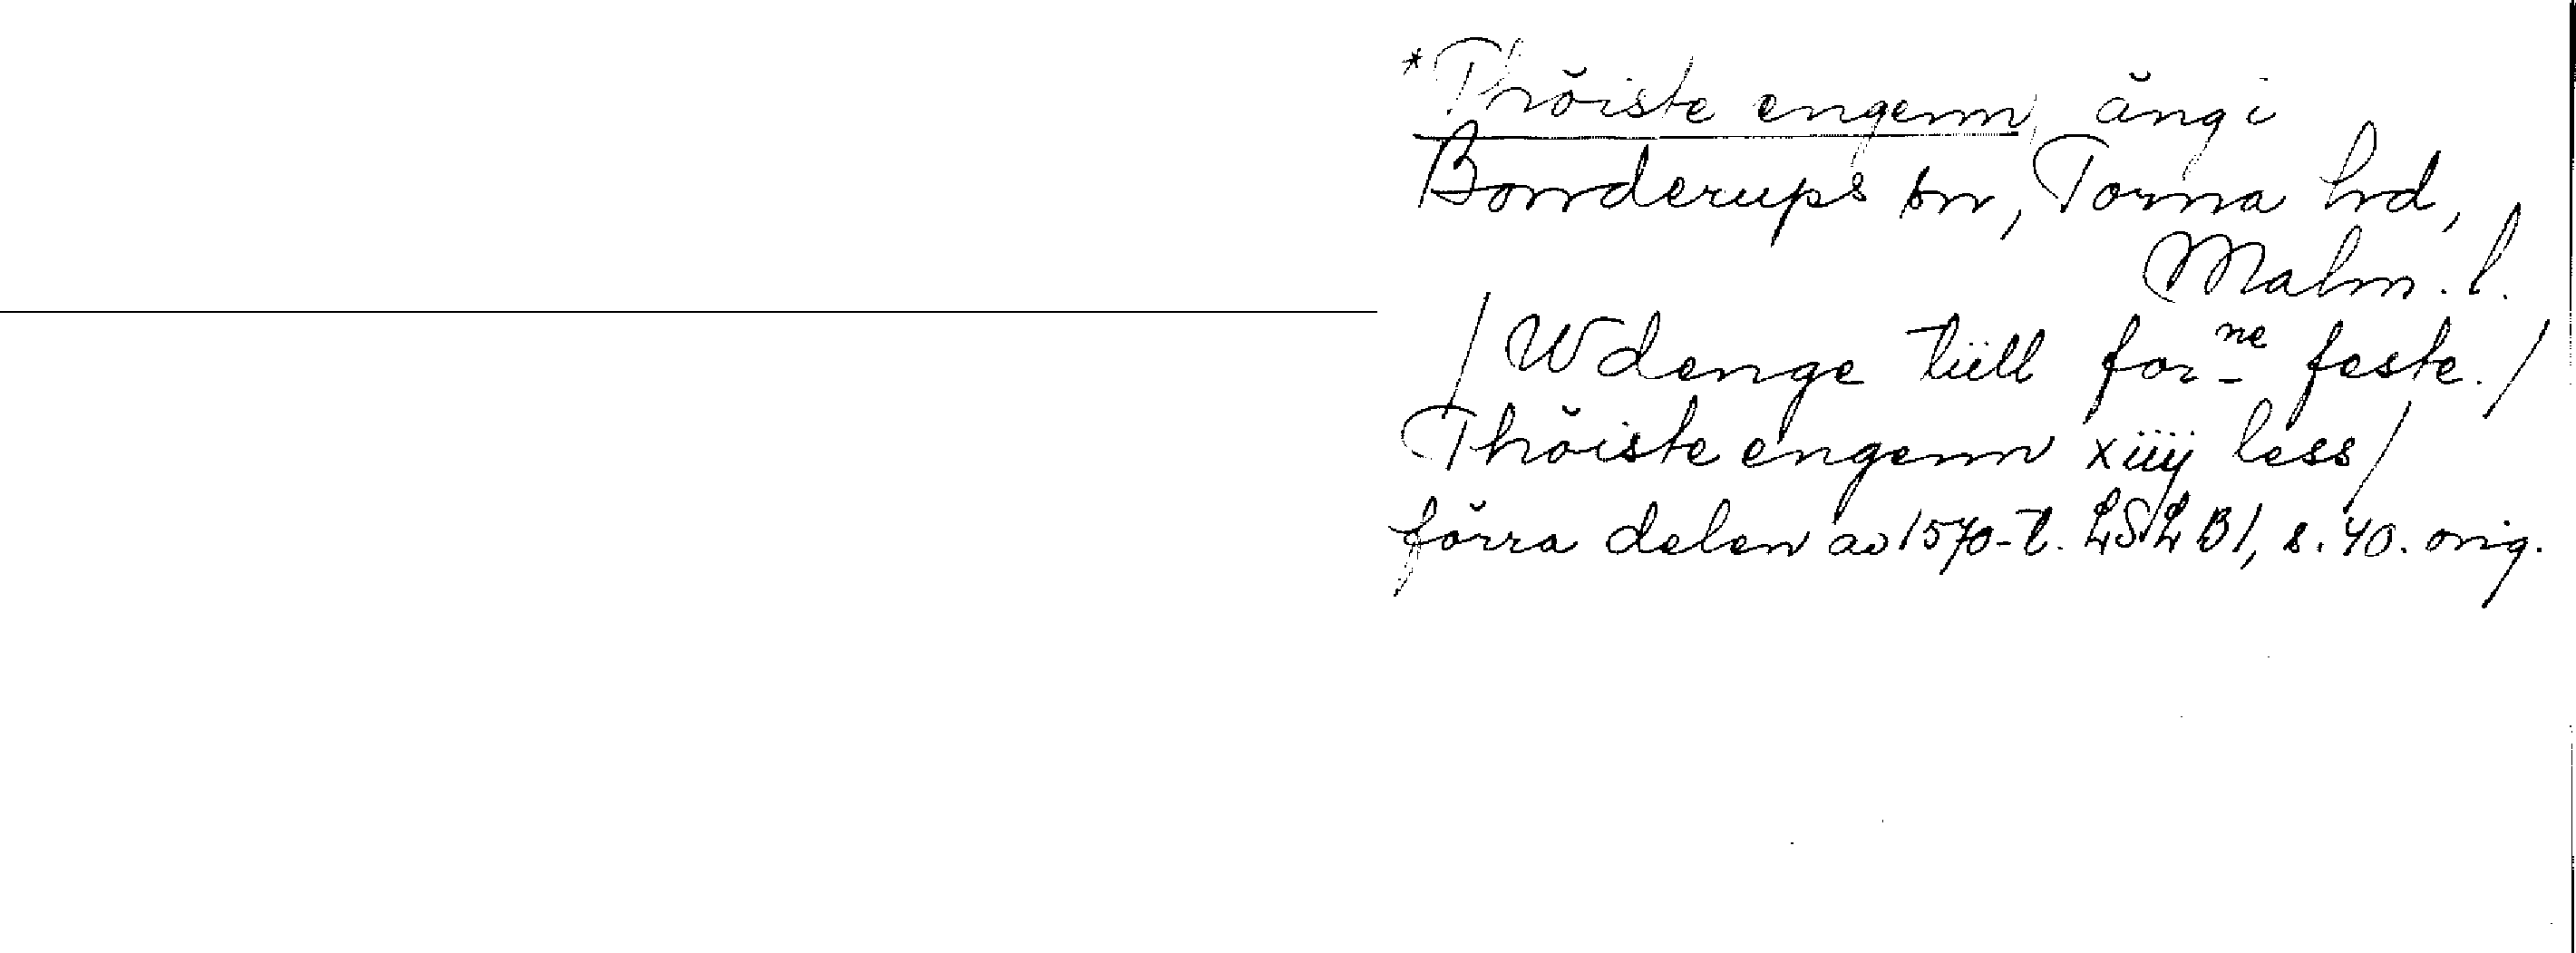 *Thöiste engenn, äng i
Bonderups sn, Torna hd,
Malm. l.
/Wdenge tiill for^ne feste./
Thöiste engenn xiiij less/
förra delen av 1570-t. LSLB1, s. 40. orig.